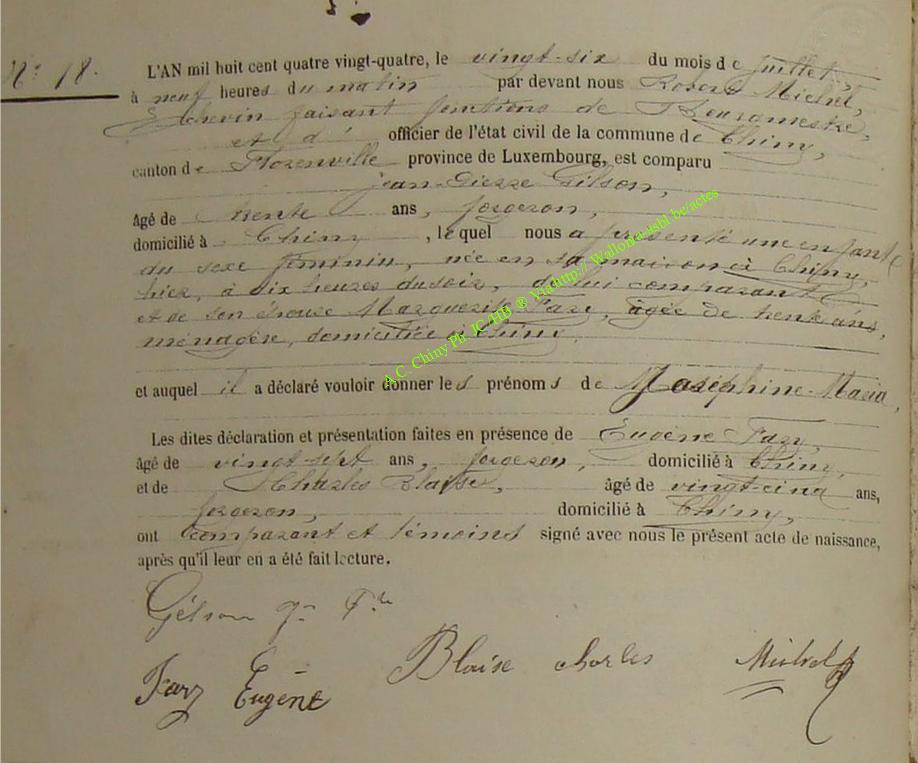 N° 18.
L'AN mil huit cent quatre vingt-quatre, le vingt-six du mois de juillet,
à neuf heures du matin par devant nous Michel,
Echevin faisant fonctions de Bourgmestre,
et d' officier de l'état civil de la commune de Chiny,
canton de Florenville province de Luxembourg, est comparu
Jean-Pierre Gilson,
âgé de trente ans, forgeron,
domicilié à Chiny, lequel nous a présenté une enfant
du sexe féminin, née en sa maison à Chiny,
hier, à six heures du soir, de lui comparant
et de son épouse Marguerite Fazy, âgée de trente ans,
ménagère, domiciliée à Chiny.
et auquel il a déclaré vouloir donner les prénoms de Joséphine-Maria,
Les dites déclaration et présentation faites en présence de Eugène Fazy,
âgé de vingt-sept ans, forgeron, domicilié à Chiny,
et de Charles Blaise, âgé de vingt-cinq ans,
forgeron, domicilié à Chiny,
ont comparant et témoins signé avec nous le présent acte de naissance,
après qu'il leur en a été fait lecture.
Gilson
Blaise charles Michel
Fazy Eugène
A.C. Chiny Ph JC/HB ® Via http:// Wallonia.asbl be/actes